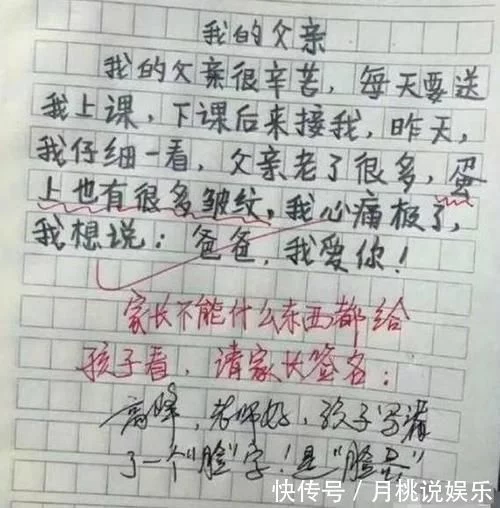 我的父亲
我的父亲很辛苦，每天要送
我上课，下课后来接我，昨天，
我仔细一看，父亲老了很多，蛋
上也有很多皱纹，我心痛极了，
我想说：爸爸，我爱你！
家长不能什么东西都给
孩子看，请家长签名：
高峰，老师好，孩子写漏
了一个“脸”字！是“脸蛋”
快传号/月桃说娱乐